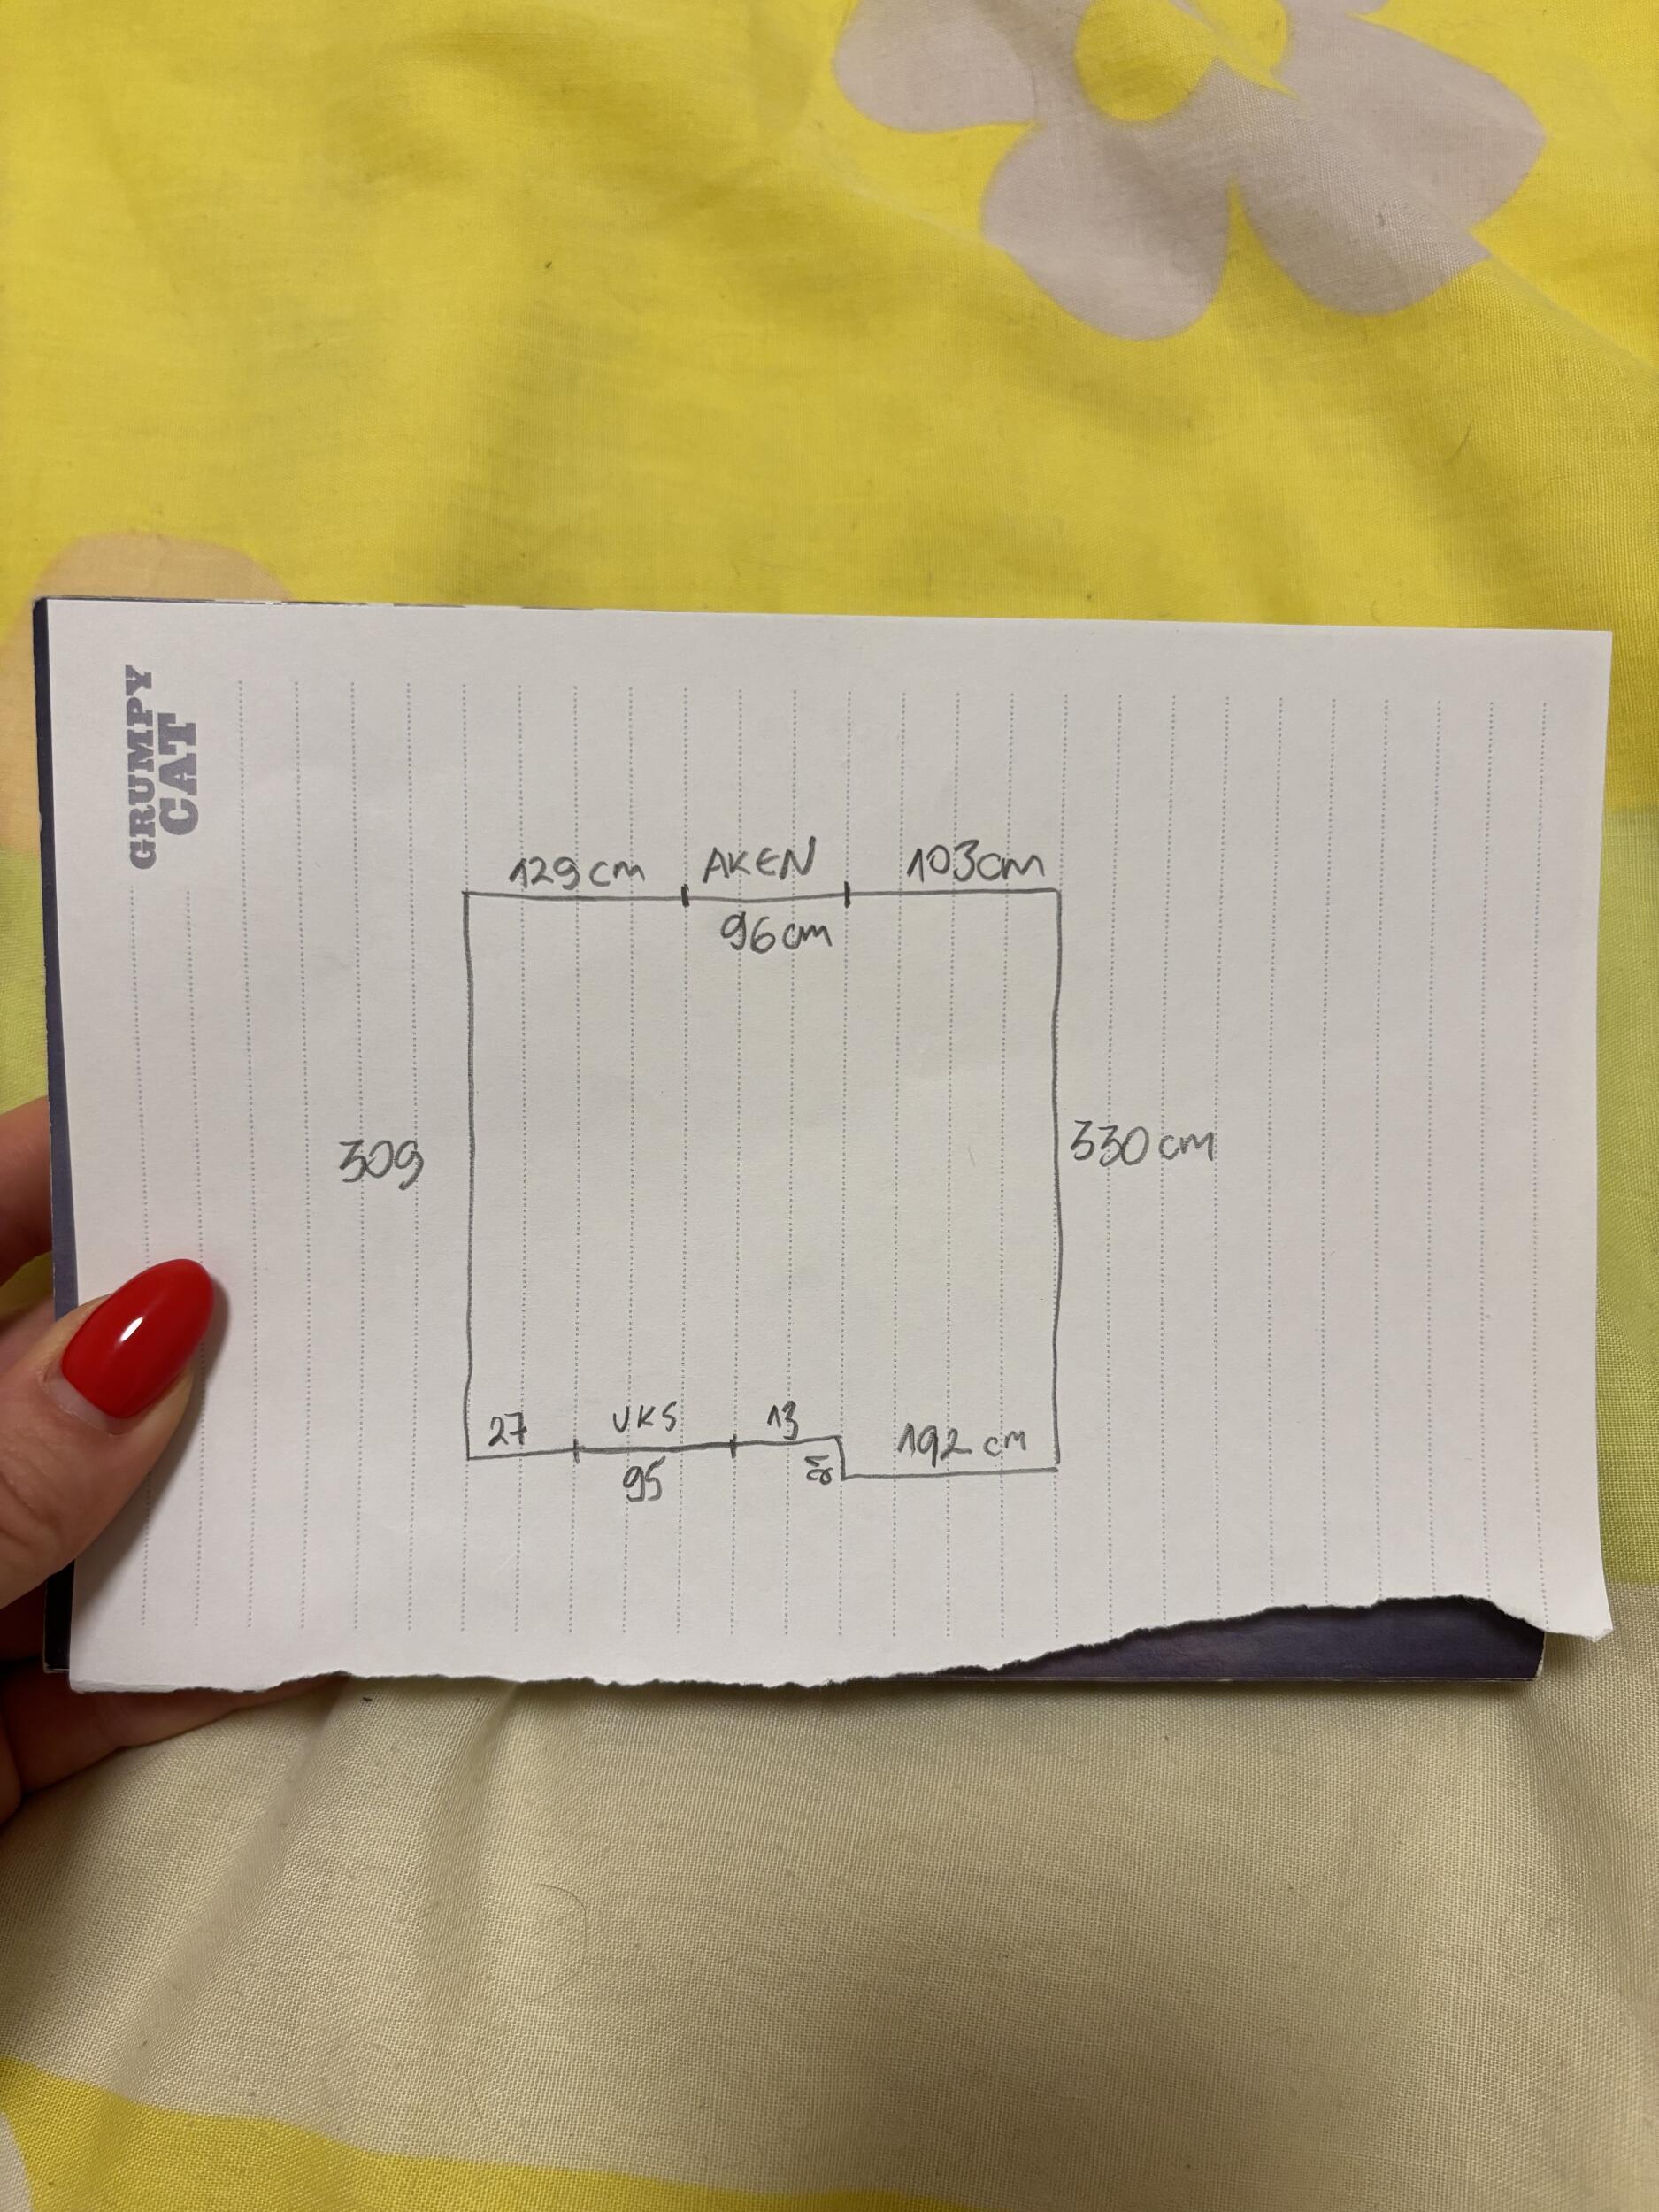 GRUMPY
CAT
129 cm AKEN 103 cm
96 cm
309 330 cm
27 UKS 13 192 cm
95